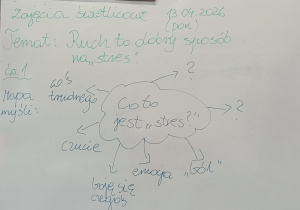 Zajęcia świetlicowe 13.04.2026
(pon)
Temat: Ruch to dobry sposób
na „stres"
cz. 1
Mapa
myśli:
coś
trudnego
?
?
Co to
jest „stres?"
czucie
boję się
czegoś
emocja
„ból"